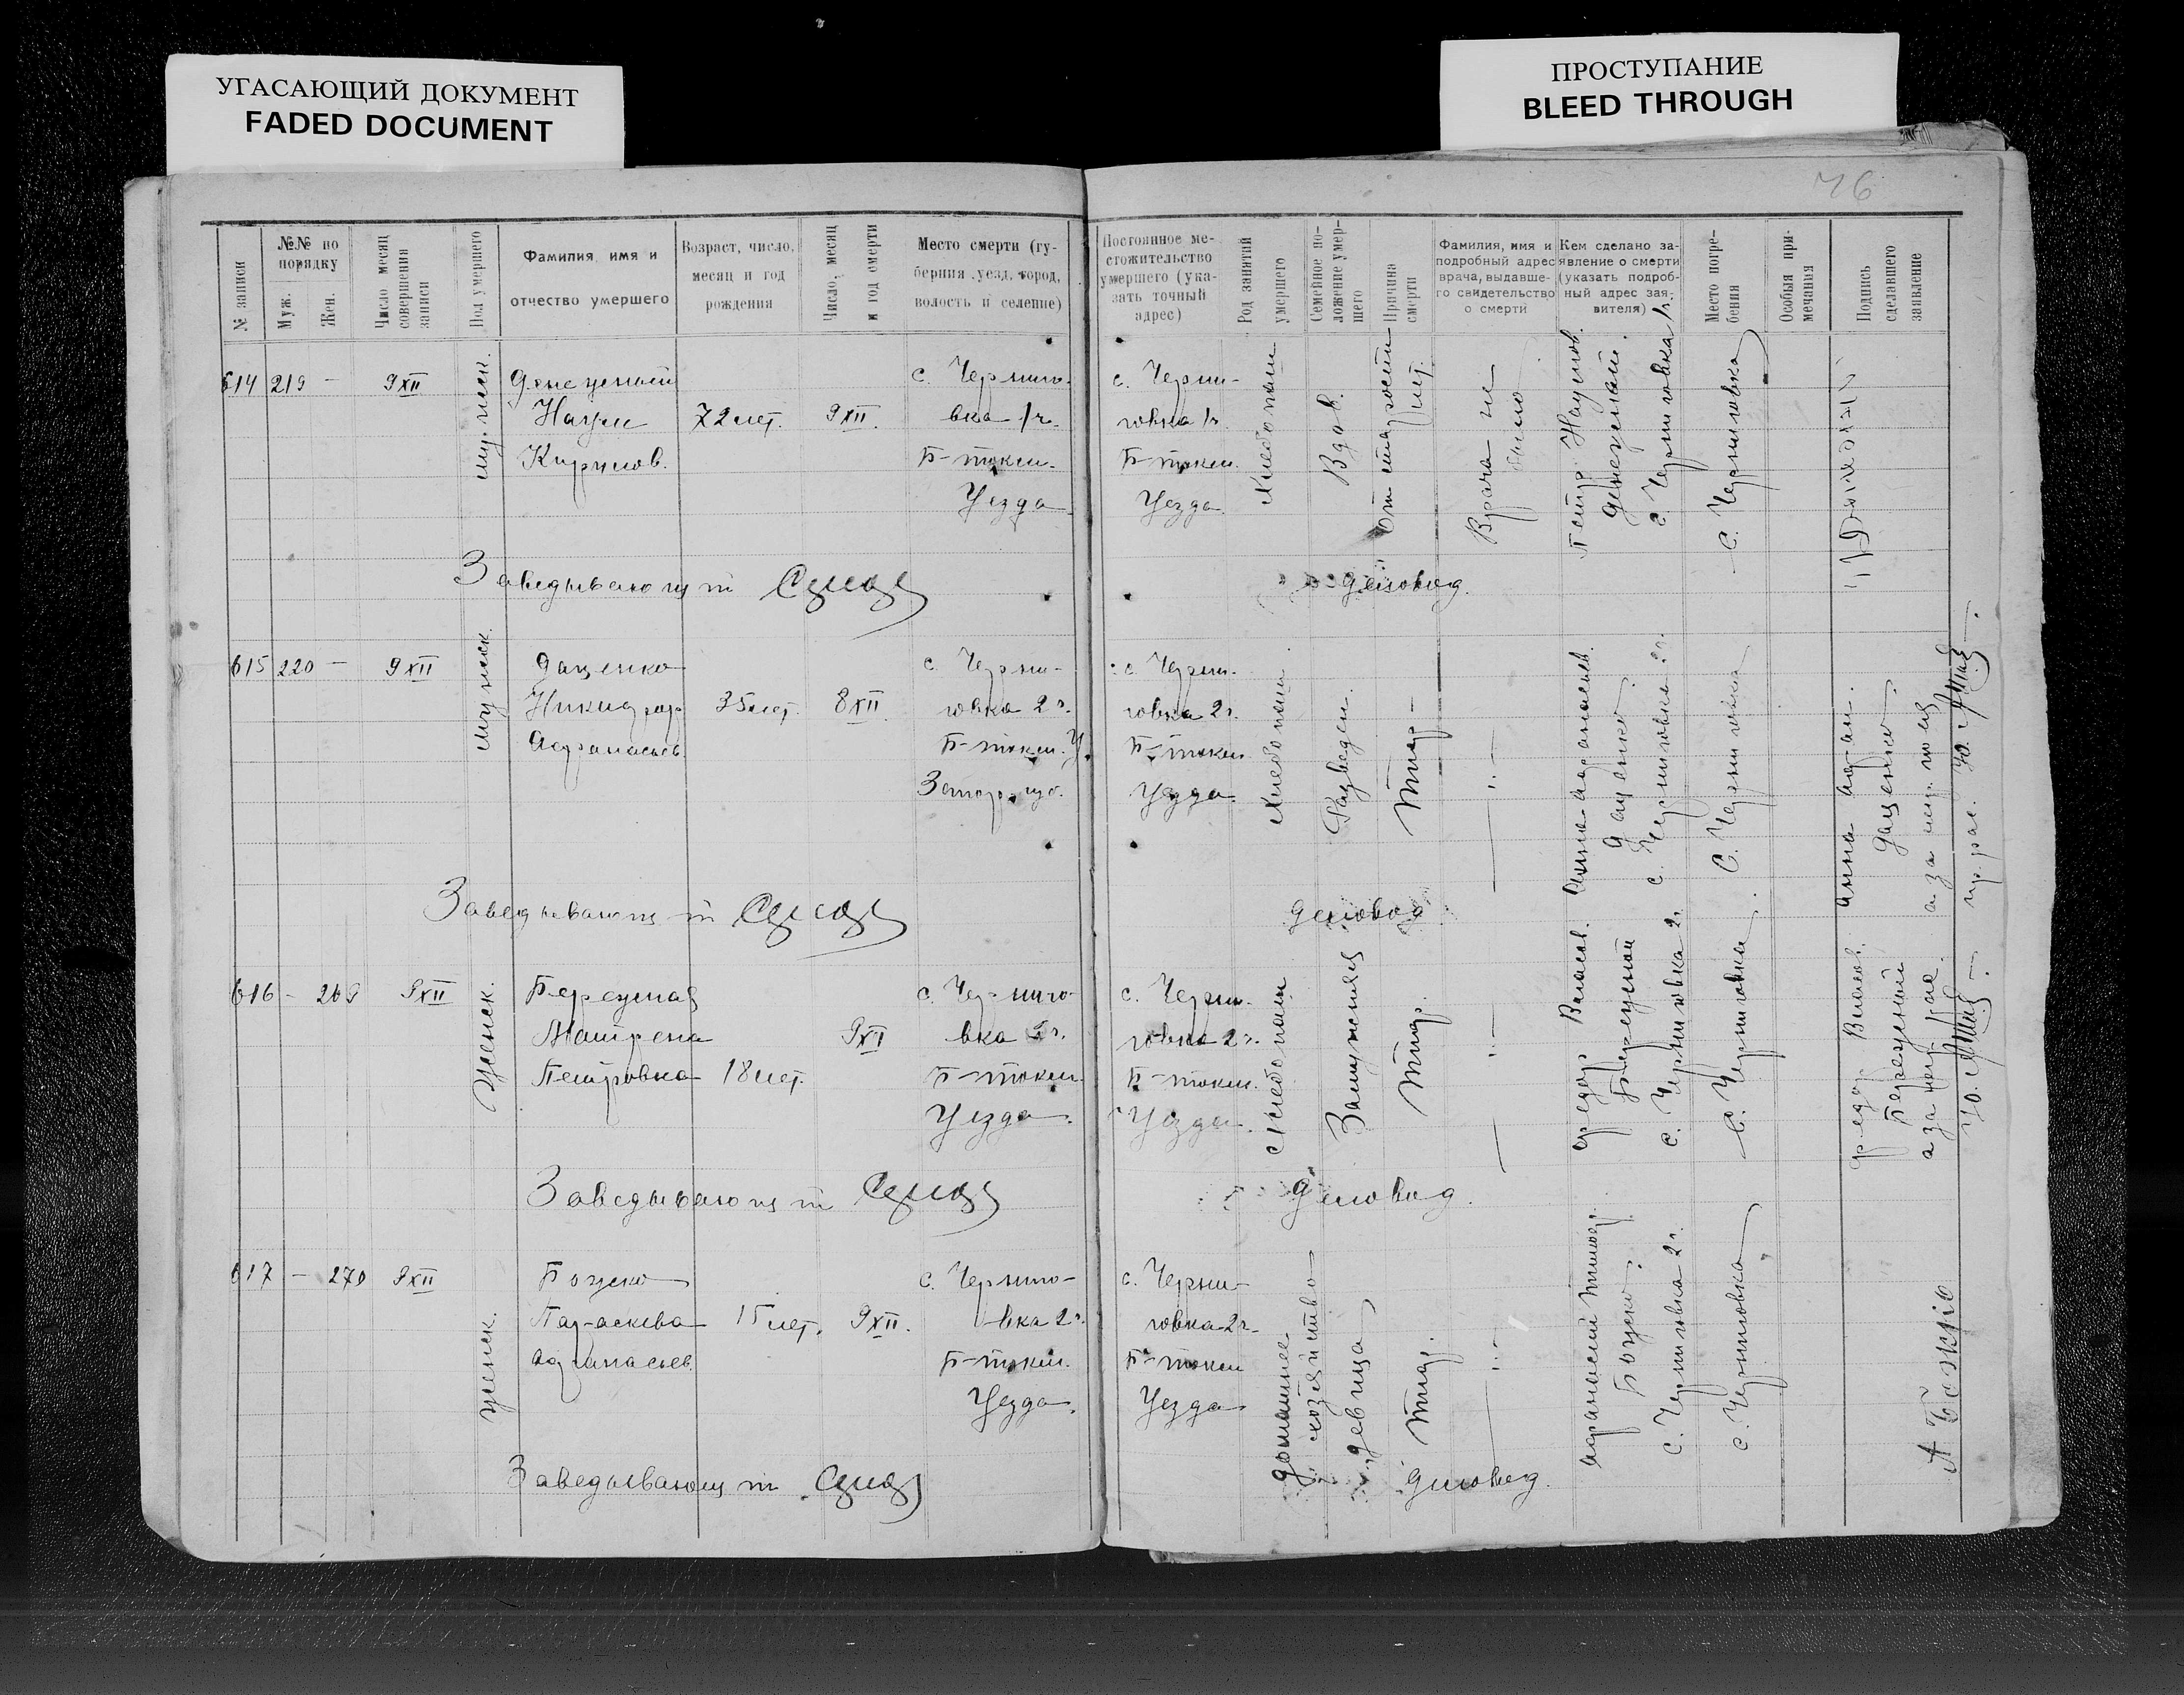 УГАСАЮЩИЙ ДОКУМЕНТ
FADED DOCUMENT
ПРОСТУПАНИЕ
BLEED THROUGH
76
№ записи
№№ по порядку
Муж.
Жен.
Число месяц совершения записи
Пол умершего
Фамилия, имя и
отчество умершего
Возраст, число,
месяц и год
рождения
Число, месяц
и год смерти
Место смерти (гу-
берния уезд, город,
волость и селение)
Постоянное ме-
стожительство
умершего (ука-
зать точный
адрес)
Род занятий
умершего
Семейное по-
ложение умер-
шего
Причина
смерти
Фамилия, имя и
подробный адрес
врача, выдавше-
го свидетельство
о смерти
Кем сделано за-
явление о смерти
(указать подроб-
ный адрес зая-
вителя)
Место погре-
бения
Особыя при-
мечания
Подпись
сделавшего
заявление
614 219 – 9 XII
муженск.
Наум 72 лет. 9 XII.
Кирилов.
с. Черниго-
вка 1ч.
Б-токм.
Уезда
с. Черни-
говка 1ч
Б-токм.
Уезда
Хлебопаш
Вдов.
От старости
лет.
Врача не
было
Петр Наумов.
с. Черниговка 1ч.
С. Черниговка
Заведывающий
Деловод.
615 220 – 9 XII
мужск.
Даценко
Никифор 35 лет. 8 XII
Афанасьев.
с. Черни-
говка 2ч.
Б-токм. У.
Запор. губ.
с. Черни-
говка 2ч.
Б-токм.
Уезда.
Хлебопаш
Разведен.
Тиф
– " –
Анна Афанасьев.
Даценко.
с. Черниговка 2ч.
С. Черниговка
Анна Аф-ан.
Даценко
Заведывающий
Деловод
616 – 269 9 XII
Женск.
Березная
Матрена 9 XI
Петровна 18 лет.
с. Черниго-
вка 2ч.
Б-токм.
Уезда.
с. Черни-
говка 2ч.
Б-токм.
Уезда.
Хлебопаш
Замужняя
Тиф.
– " –
Федор Власов.
Березной
с. Черниговка 2ч.
С. Черниговка
Федор Власов.
Березный
а за негр-ое.
Заведывающий
Деловод.
617 – 270 9 XII
женск.
Божко
Параскева 15 лет. 9 XII.
Афанасьев.
с. Черниго-
вка 2ч.
Б-токм.
Уезда.
с. Черни-
говка 2ч.
Б-токм
Уезда
домашнее
хозяйство
девица
Тиф.
– " –
Божко.
с. Черниговка 2ч.
с. Черниговка
А Божко
Заведывающий
Деловод.